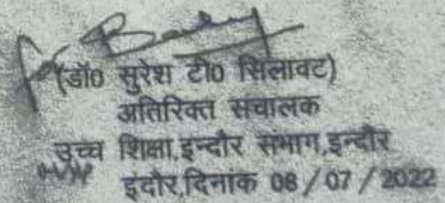 (डॉ0 सुरेश टी0 सिलावट)
अतिरिक्त संचालक
उच्च शिक्षा,इन्दौर संभाग,इन्दौर
इंदौर,दिनांक 08 / 07 / 2022